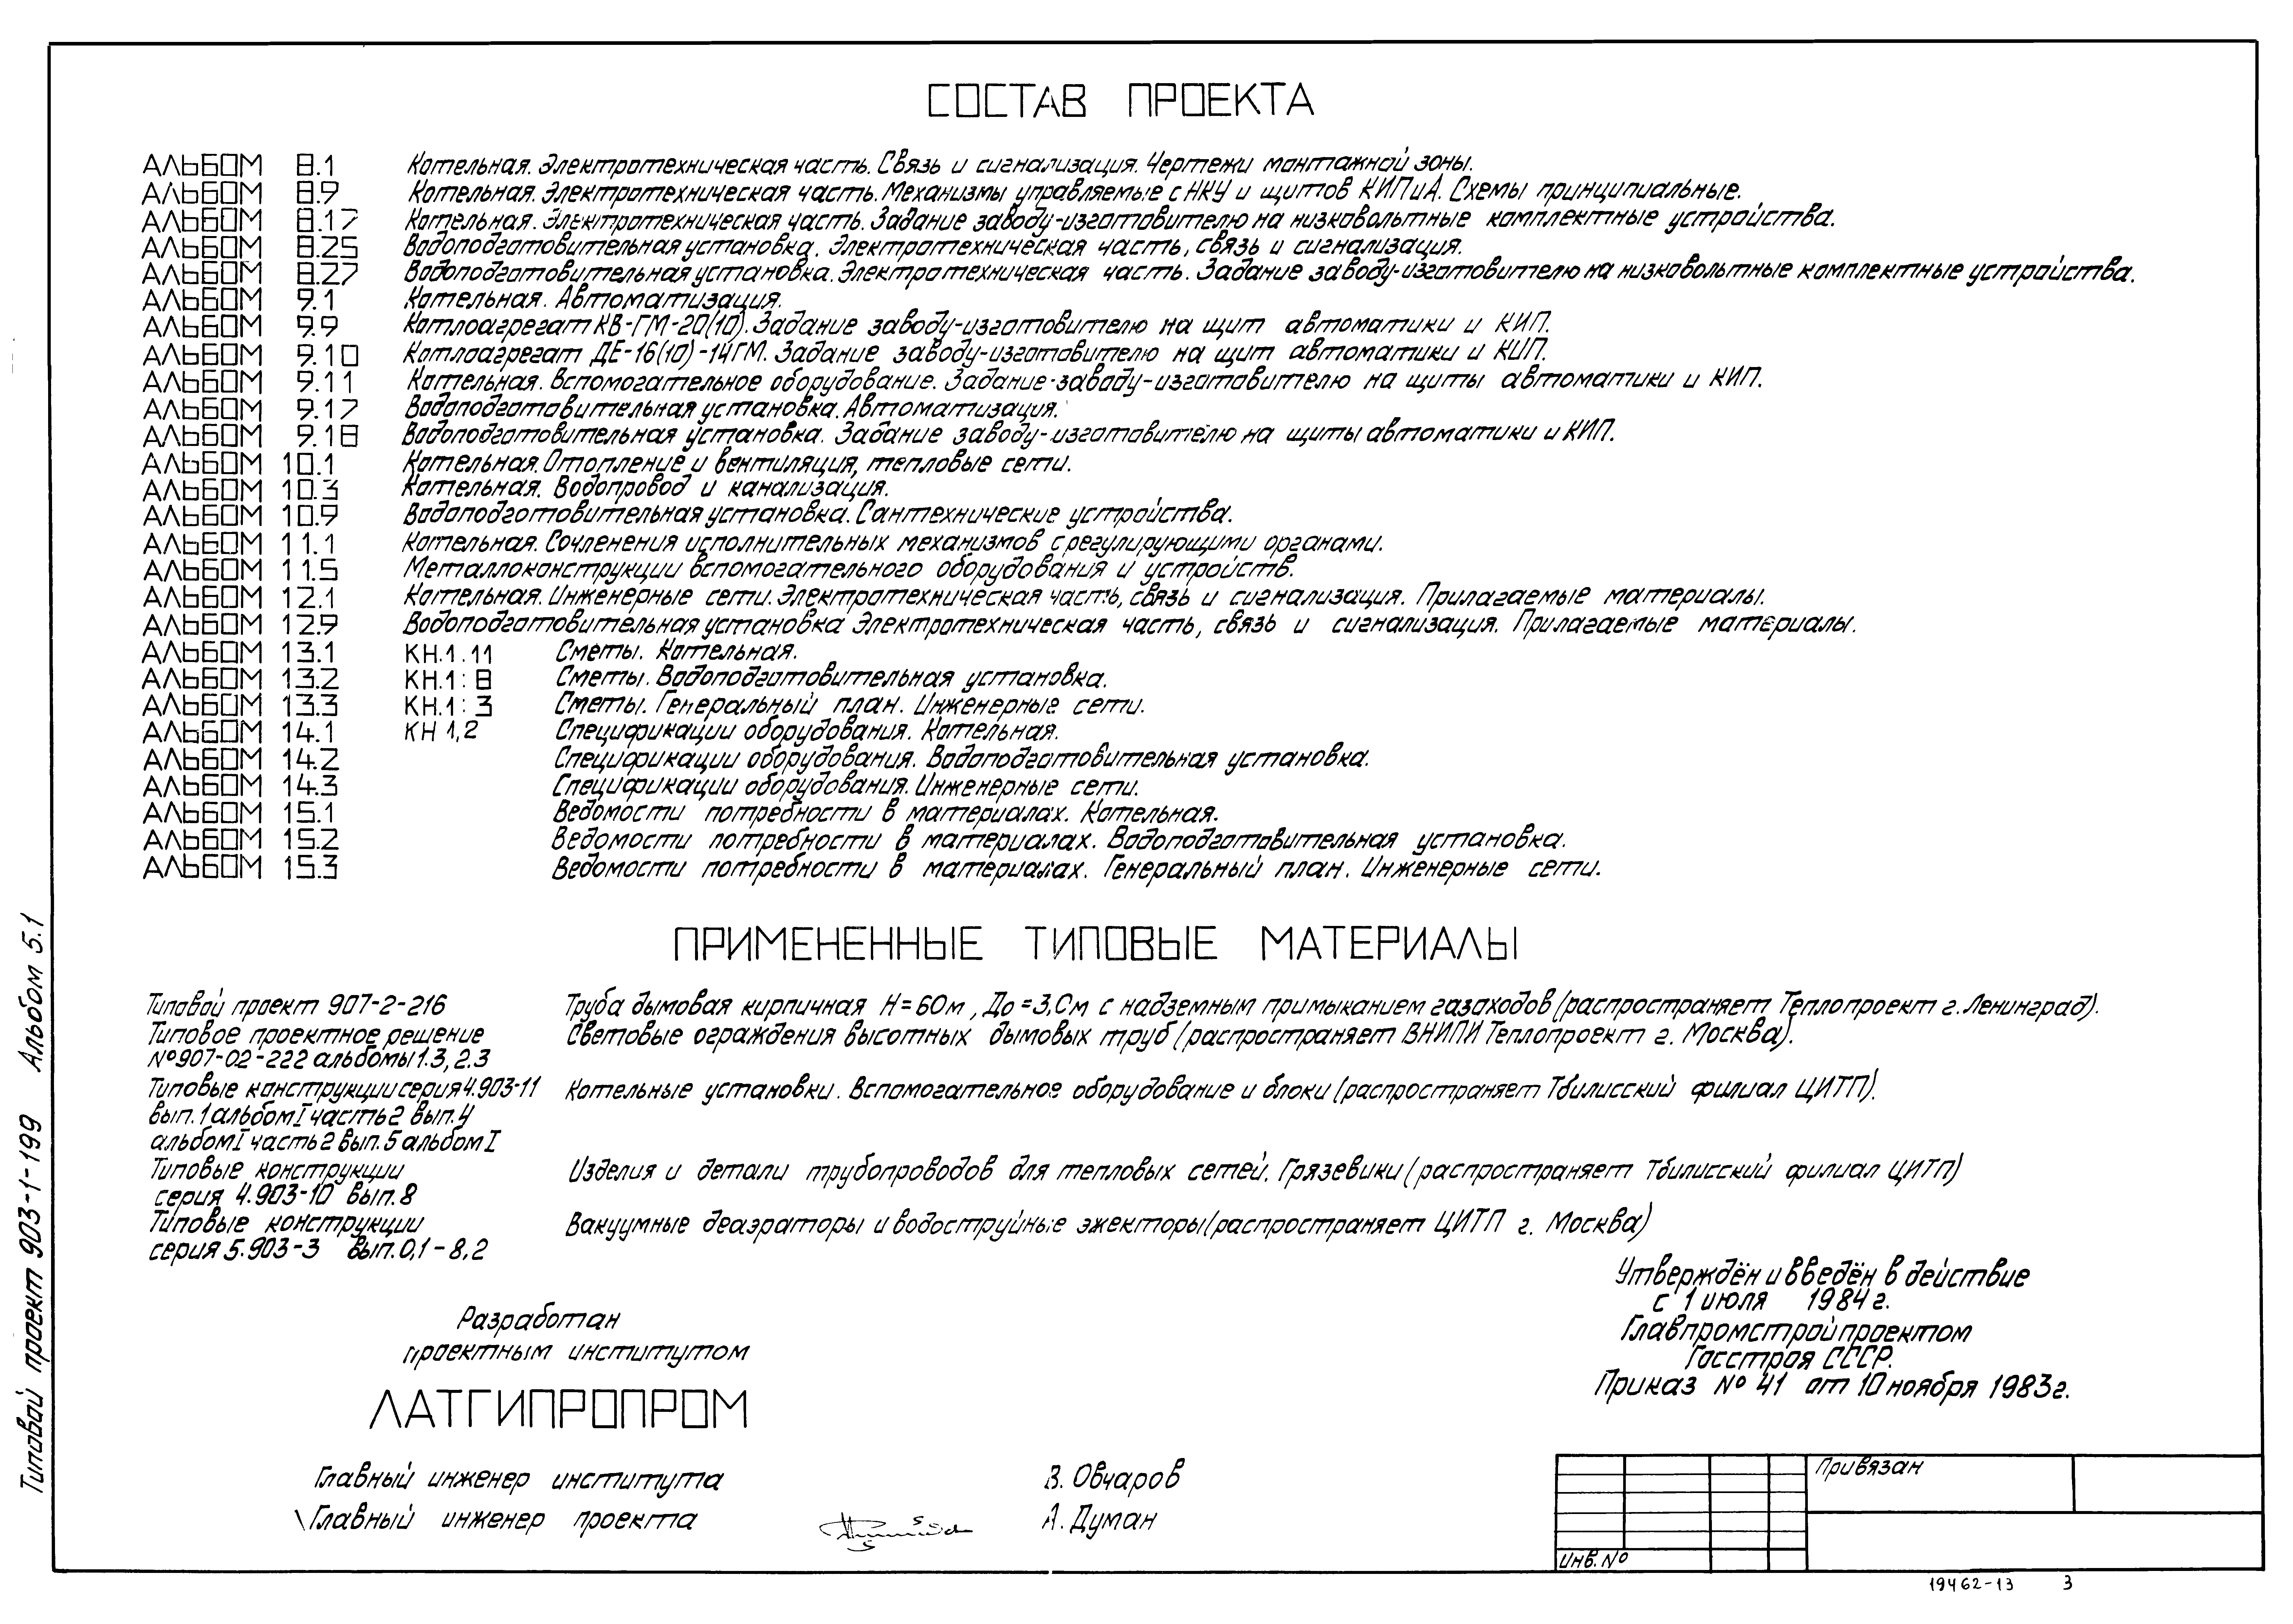 СОСТАВ ПРОЕКТА
АЛЬБОМ 8.1 Котельная. Электротехническая часть. Связь и сигнализация. Чертежи монтажной зоны.
АЛЬБОМ 8.9 Котельная. Электротехническая часть. Механизмы управляемые с НКУ и щитов КИПиА. Схемы принципиальные.
АЛЬБОМ 8.17 Котельная. Электротехническая часть. Задание заводу-изготовителю на низковольтные комплектные устройства.
АЛЬБОМ 8.25 Водоподготовительная установка. Электротехническая часть, связь и сигнализация.
АЛЬБОМ 8.27 Водоподготовительная установка. Электротехническая часть. Задание заводу-изготовителю на низковольтные комплектные устройства.
АЛЬБОМ 9.1 Котельная. Автоматизация.
АЛЬБОМ 9.9 Котлоагрегат КВ-ГМ-20(10). Задание заводу-изготовителю на щит автоматики и КИП.
АЛЬБОМ 9.10 Котлоагрегат ДЕ-16(10)-14ГМ. Задание заводу-изготовителю на щит автоматики и КИП.
АЛЬБОМ 9.11 Котельная. Вспомогательное оборудование. Задание-заводу-изготовителю на щиты автоматики и КИП.
АЛЬБОМ 9.17 Водоподготовительная установка. Автоматизация.
АЛЬБОМ 9.18 Водоподготовительная установка. Задание заводу-изготовителю на щиты автоматики и КИП.
АЛЬБОМ 10.1 Котельная. Отопление и вентиляция, тепловые сети.
АЛЬБОМ 10.3 Котельная. Водопровод и канализация.
АЛЬБОМ 10.9 Водоподготовительная установка. Сантехнические устройства.
АЛЬБОМ 11.1 Котельная. Сочленения исполнительных механизмов с регулирующими органами.
АЛЬБОМ 11.5 Металлоконструкции вспомогательного оборудования и устройств.
АЛЬБОМ 12.1 Котельная. Инженерные сети. Электротехническая часть, связь и сигнализация. Прилагаемые материалы.
АЛЬБОМ 12.9 Водоподготовительная установка Электротехническая часть, связь и сигнализация. Прилагаемые материалы.
АЛЬБОМ 13.1 КН.1.11 Сметы. Котельная.
АЛЬБОМ 13.2 КН.1:8 Сметы. Водоподготовительная установка.
АЛЬБОМ 13.3 КН.1:3 Сметы. Генеральный план. Инженерные сети.
АЛЬБОМ 14.1 КН 1,2 Спецификации оборудования. Котельная.
АЛЬБОМ 14.2 Спецификации оборудования. Водоподготовительная установка.
АЛЬБОМ 14.3 Спецификации оборудования. Инженерные сети.
АЛЬБОМ 15.1 Ведомости потребности в материалах. Котельная.
АЛЬБОМ 15.2 Ведомости потребности в материалах. Водоподготовительная установка.
АЛЬБОМ 15.3 Ведомости потребности в материалах. Генеральный план. Инженерные сети.
ПРИМЕНЕННЫЕ ТИПОВЫЕ МАТЕРИАЛЫ
Типовой проект 907-2-216 Труба дымовая кирпичная Н=60м, До=3,0м с надземным примыканием газоходов (распространяет Теплопроект г. Ленинград).
Типовое проектное решение Световые ограждения высотных дымовых труб (распространяет ВНИПИ Теплопроект г. Москва).
№907-02-222 альбомы 1.3, 2.3
Типовые конструкции серия 4.903-11 Котельные установки. Вспомогательное оборудование и блоки (распространяет Тбилисский филиал ЦИТП).
вып. 1 альбом I часть 2 вып. 4
альбом I часть 2 вып. 5 альбом I
Типовые конструкции Изделия и детали трубопроводов для тепловых сетей. Грязевики (распространяет Тбилисский филиал ЦИТП)
серия 4.903-10 вып. 8
Типовые конструкции Вакуумные деаэраторы и водоструйные эжекторы (распространяет ЦИТП г. Москва)
серия 5.903-3 вып. 0,1-8,2
Утверждён и введён в действие
с 1 июля 1984 г.
Главпромстройпроектом
Госстроя СССР.
Приказ № 41 от 10 ноября 1983 г.
Разработан
проектным институтом
ЛАТГИПРОПРОМ
Главный инженер института В. Овчаров
Главный инженер проекта А. Думан
Привязан
Инв. №
19462-13 3
Типовой проект 903-1-199 Альбом 5.1